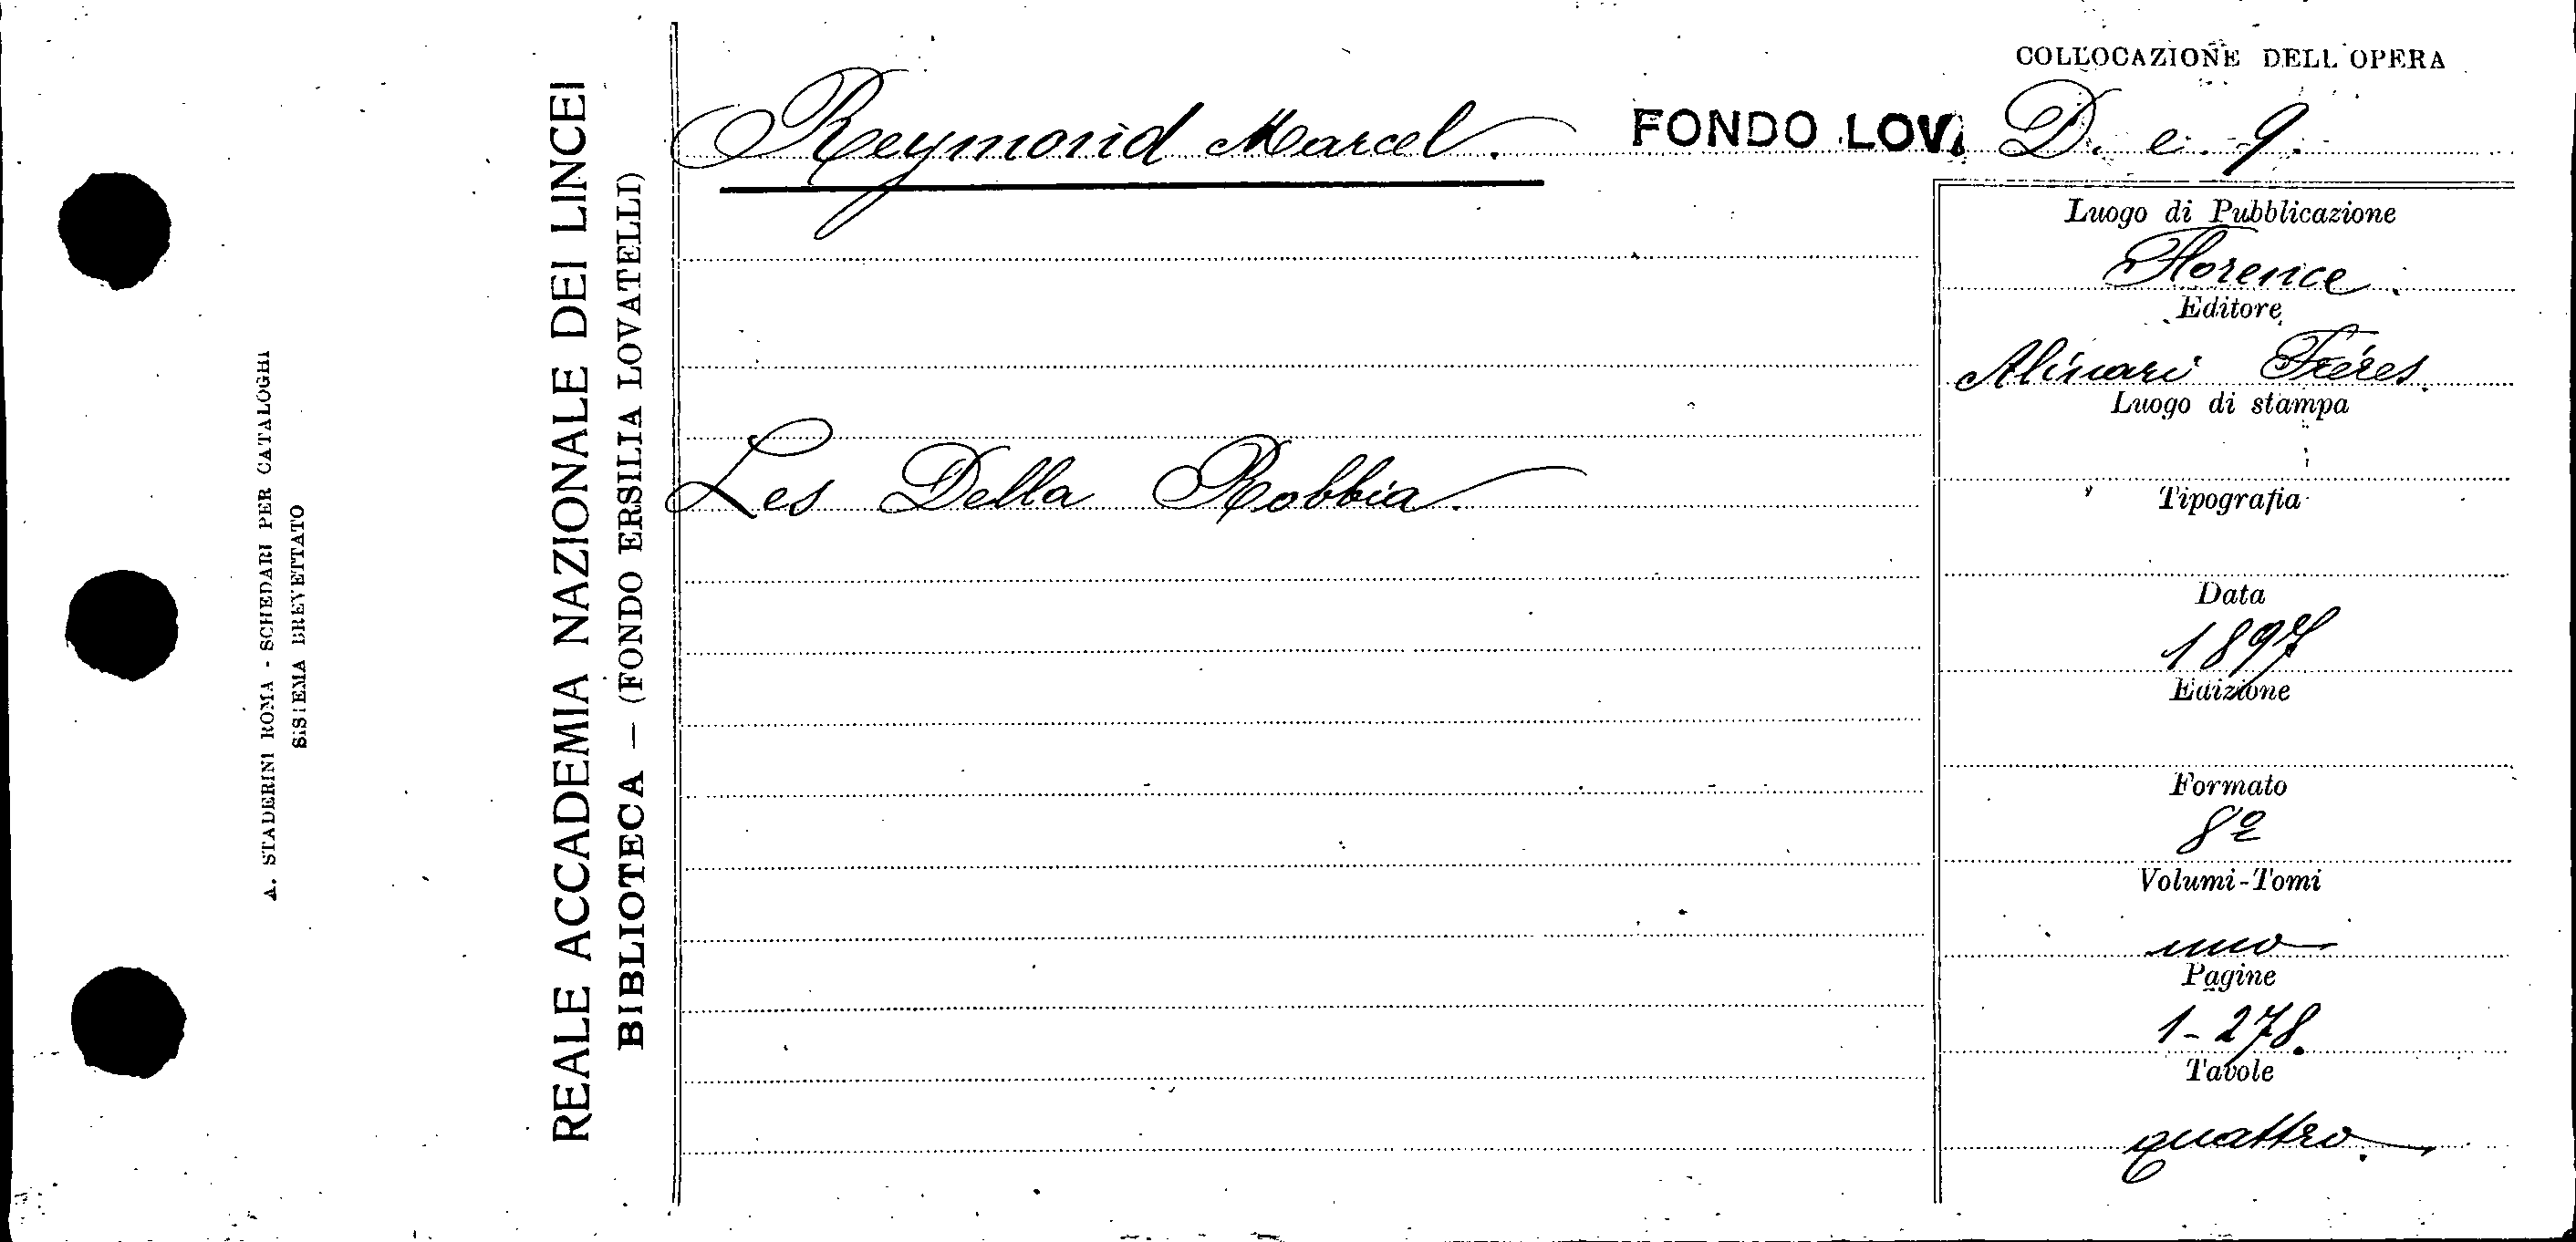 A. STADERINI ROMA - SCHEDARI PER CATALOGHI
SISTEMA BREVETTATO
REALE ACCADEMIA NAZIONALE DEI LINCEI
BIBLIOTECA — (FONDO ERSILIA LOVATELLI)
COLLOCAZIONE DELL'OPERA
Reymond Marcel. FONDO LOV. D. e. 9.
Les Della Robbia.
Luogo di Pubblicazione
Florence.
Editore
Alinari Fréres.
Luogo di stampa
Tipografia
Data
1897
Edizione
Formato
8º
Volumi-Tomi
uno
Pagine
1-278.
Tavole
quattro.